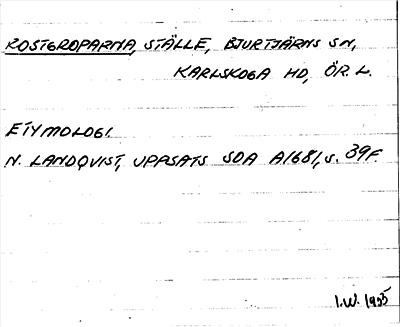 ROSTGROPARNA, STÄLLE, BJURTJÄRNS SN,
KARLSKOGA HD, ÖR. L.
ETYMOLOGI.
N. LANDQVIST, UPPSATS SOA A1681, s. 39F.
I.W. 1955